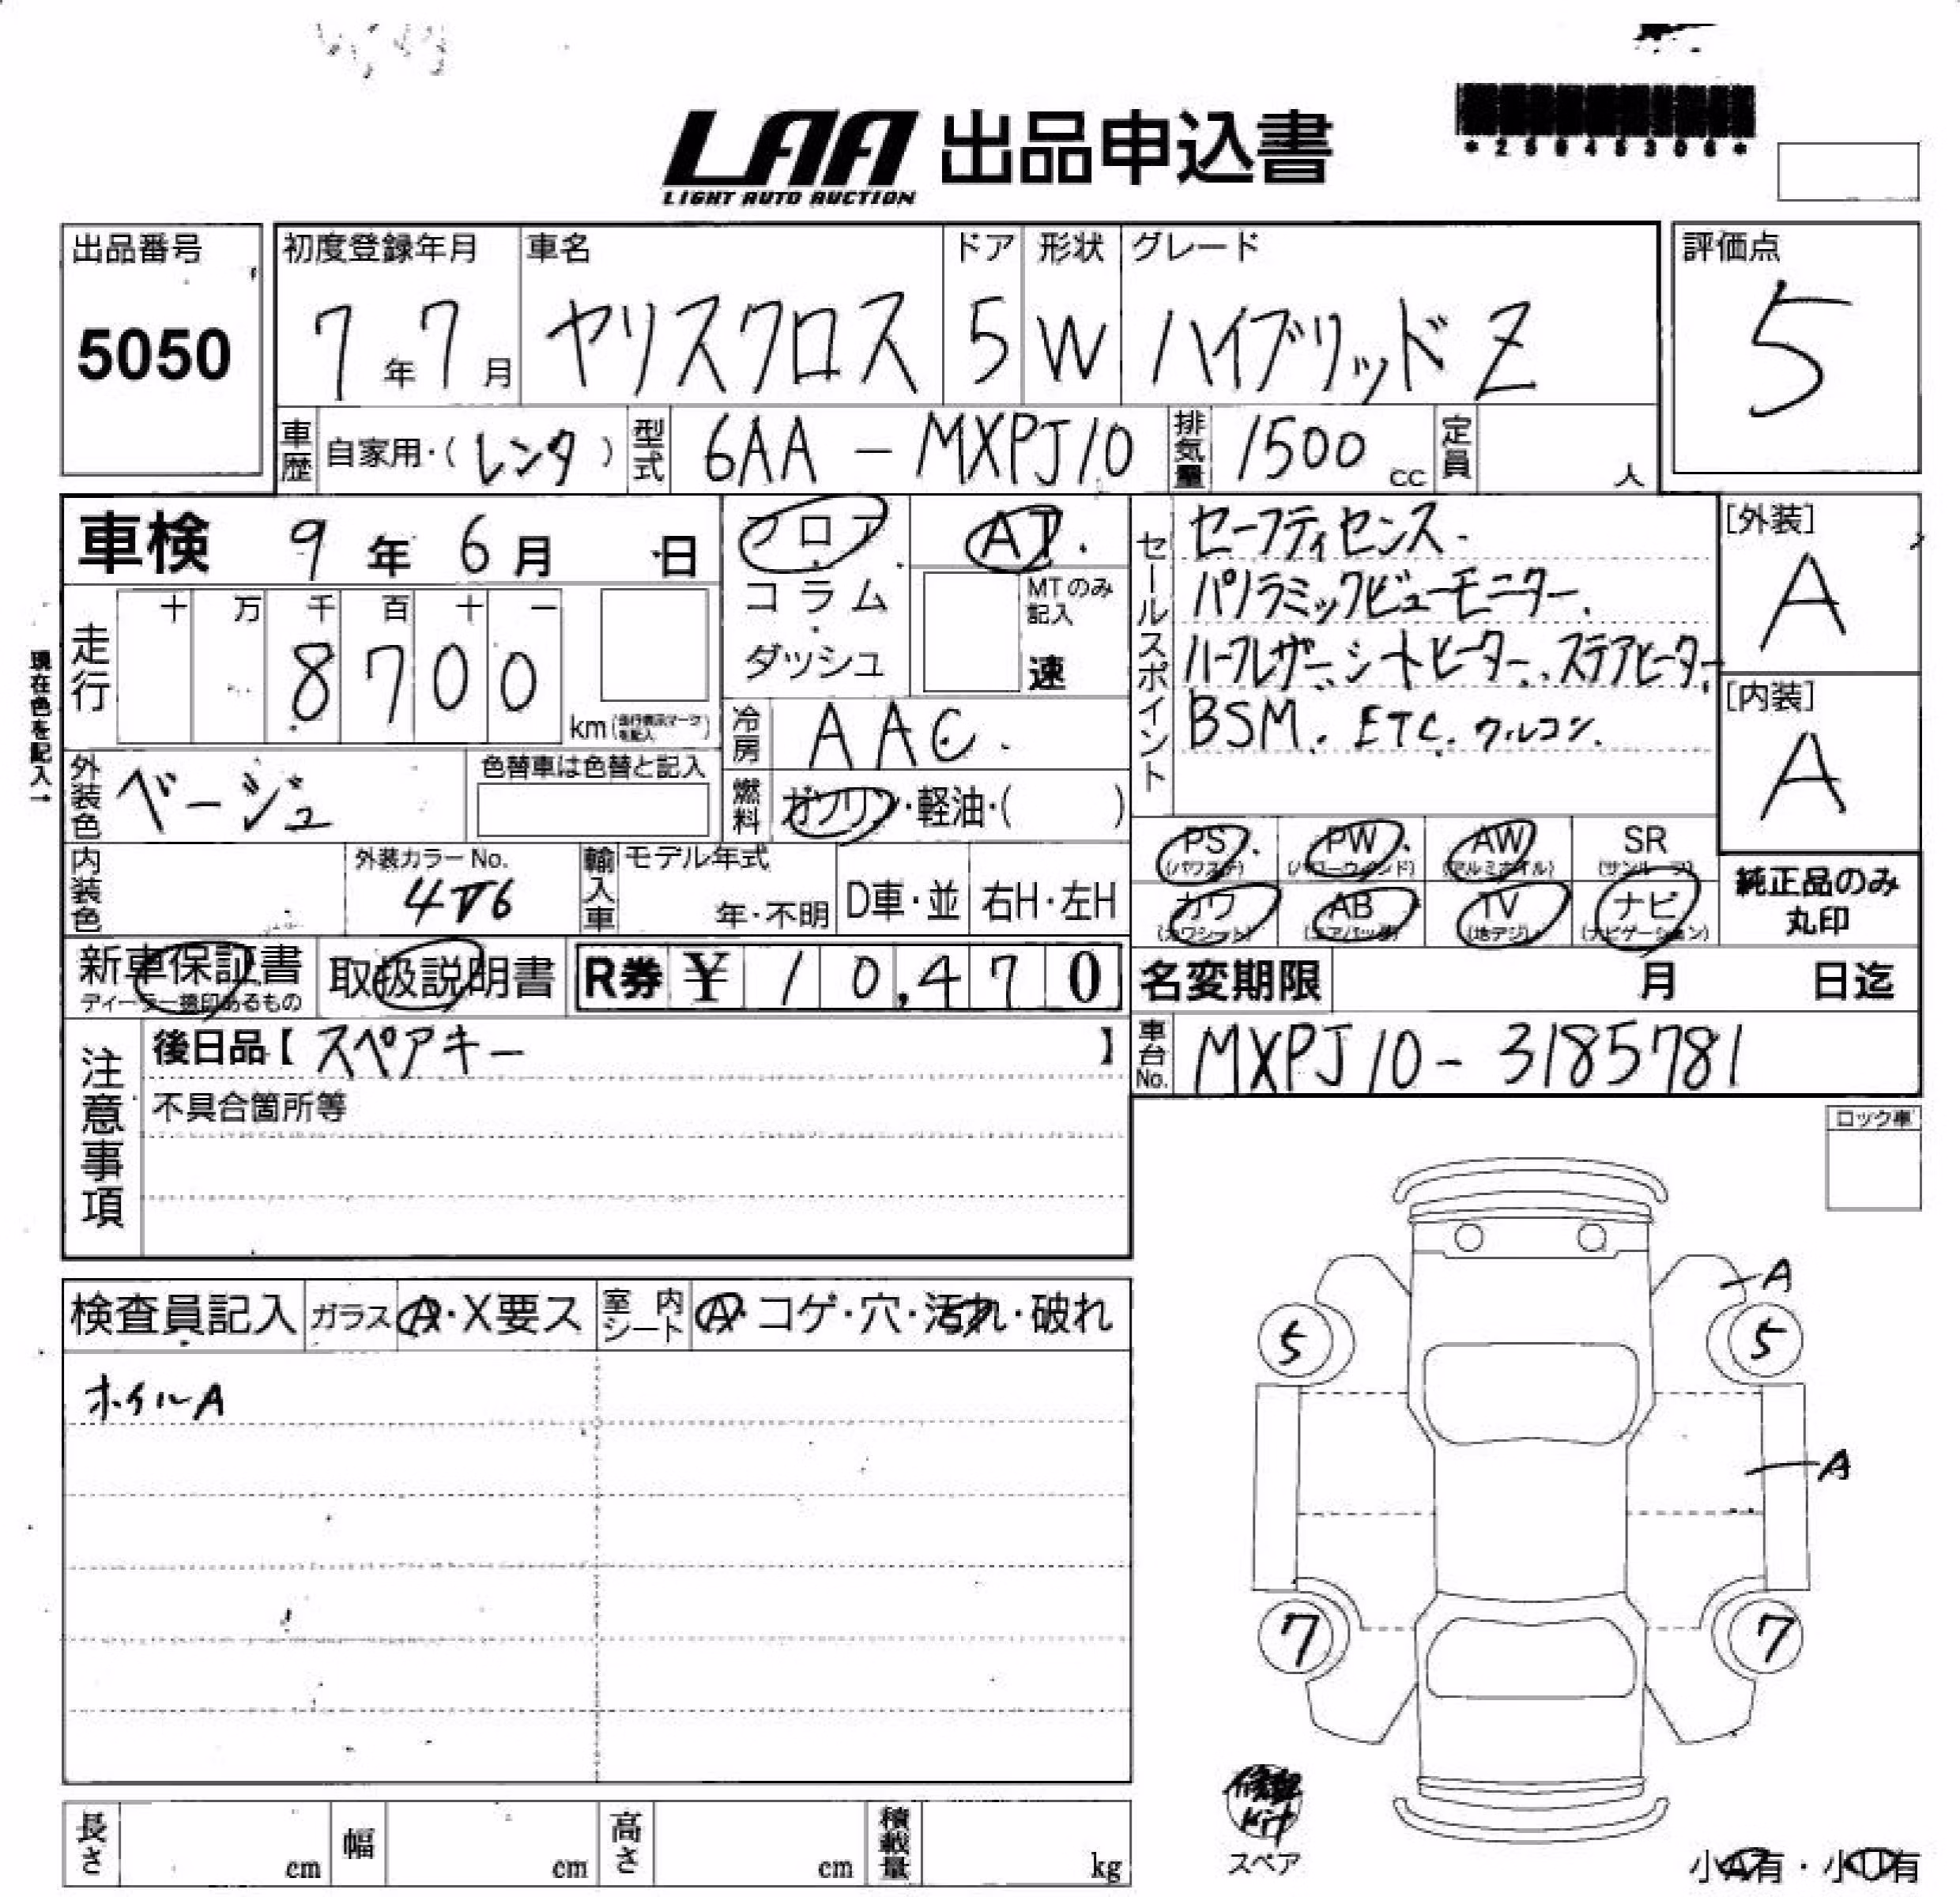 LAA 出品申込書
LIGHT AUTO AUCTION
出品番号
5050
初度登録年月 車名 ドア 形状 グレード
7年7月 ヤリスクロス 5 W ハイブリッドZ
評価点
5
車歴 自家用・(レンタ) 型式 6AA-MXPJ10 排気量 1500cc 定員 人
車検 9年6月 日
フロア
コラム
ダッシュ
AT
MTのみ記入
速
セールスポイント
セーフティセンス.
パノラミックビューモニター.
ハーフレザー、シートヒーター、ステアヒーター
BSM. ETC. クルコン.
[外装]
A
[内装]
A
現在色を記入→
走行 十 万 千 百 十 一
8700
km(走行表示マークを記入)
冷房 AAC.
燃料 ガソリン・軽油・( )
外装色 ベージュ 色替車は色替と記入
内装色 外装カラーNo.
4V6
輸入車 モデル年式
年・不明 D車・並 右H・左H
PS PW AW SR
(パワステ) (パワーウィンド) (アルミホイル) (サンルーフ)
カワ AB TV ナビ
(カワシート) (エアバッグ) (地デジ) (ナビゲーション)
純正品のみ
丸印
新車保証書
ディーラー捺印あるもの
取扱説明書 R券 ¥10,470
名変期限 月 日迄
注意事項
後日品【スペアキー 】
不具合箇所等
車台No. MXPJ10-3185781
ロック車
検査員記入 ガラス A・X要ス 室内シート A・コゲ・穴・汚れ・破れ
ホイルA
A
5 5
A
7 7
修理
Kit
スペア
小A有・小U有
長さ cm 幅 cm 高さ cm 積載量 kg